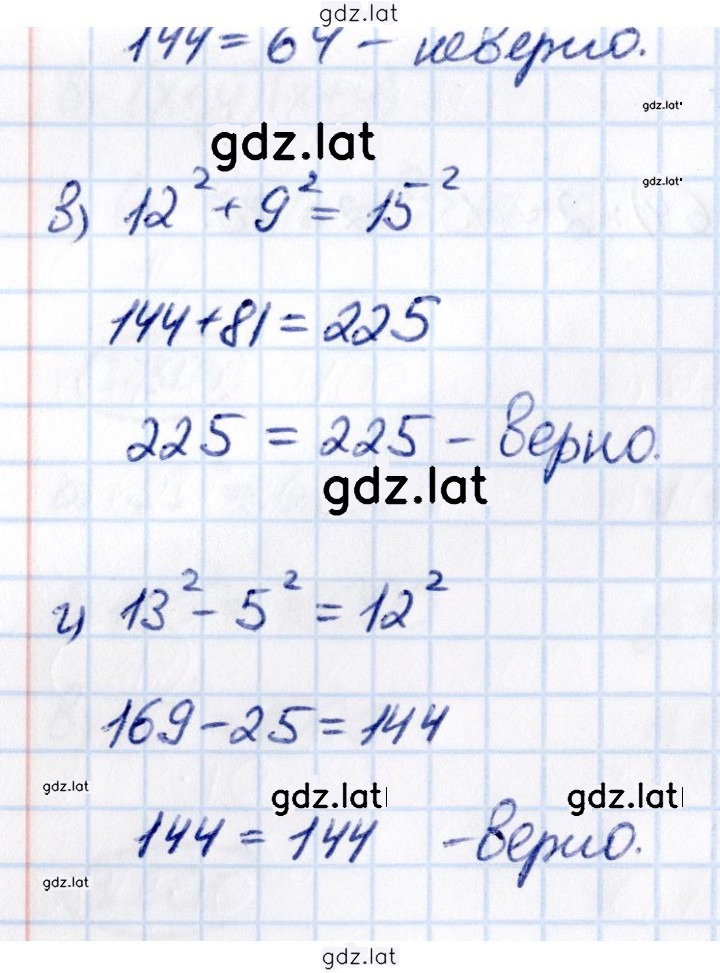 gdz.lat
144 = 64 - неверно.
gdz.lat
gdz.lat
в) 12² + 9² = 15²
gdz.lat
144 + 81 = 225
225 = 225 - верно.
gdz.lat
г) 13² - 5² = 12²
169 - 25 = 144
gdz.lat
gdz.lat
gdz.lat
144 = 144 - верно.
gdz.lat
gdz.lat